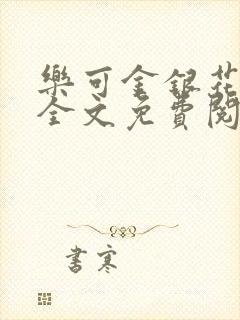 樂可金銀花
全文免費閱
書寒